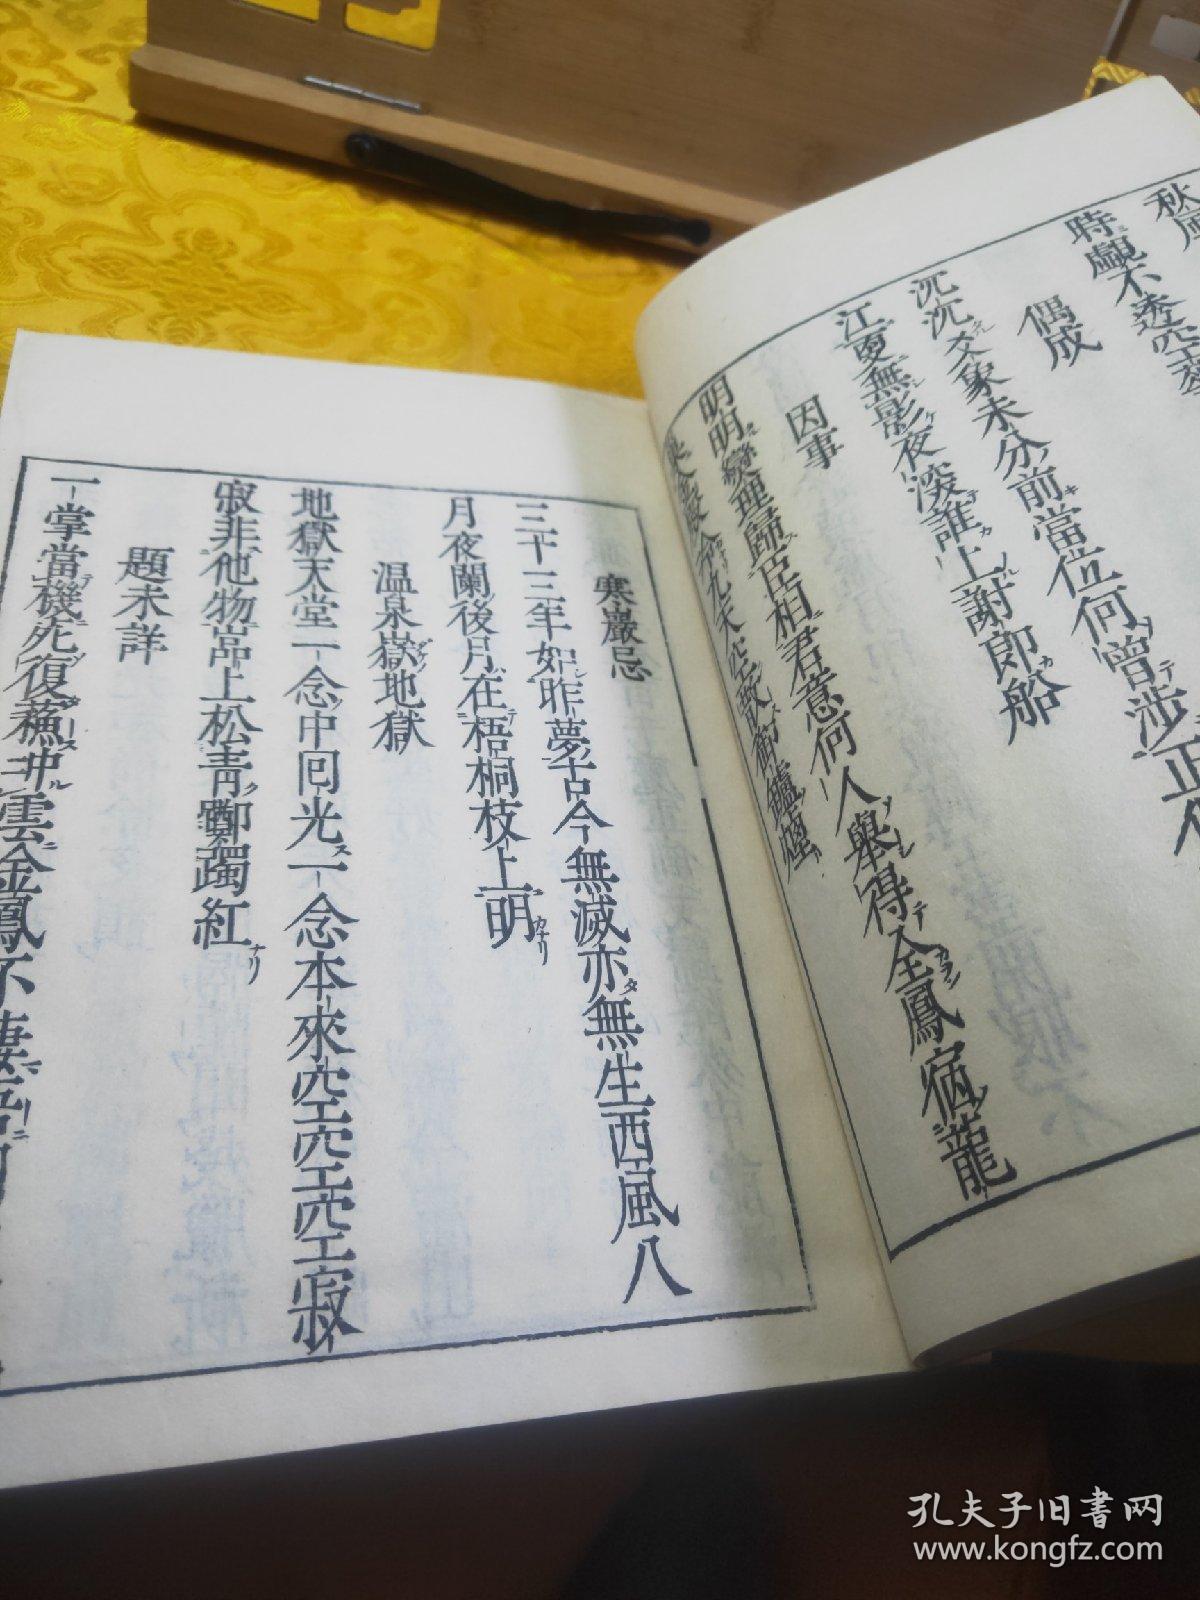 秋風
時覷不透空
偶成
沉沉爻象未分前當位何曾涉正
江更無影夜深誰上謝郎船
因事
明明變理歸臣相君意何人舉得全鳳宿龍
三十三年如昨夢古今無滅亦無生西風八
寒巖忌
月夜闌後月在梧桐枝上明
温泉嶽地獄
地獄天堂一念中囘光一念本來空空空空寂
寂非他物嵓上松青躑躅紅
題未詳
一掌當機死復蘇冲雲金鳳不棲梧
孔夫子旧书网
www.kongfz.com